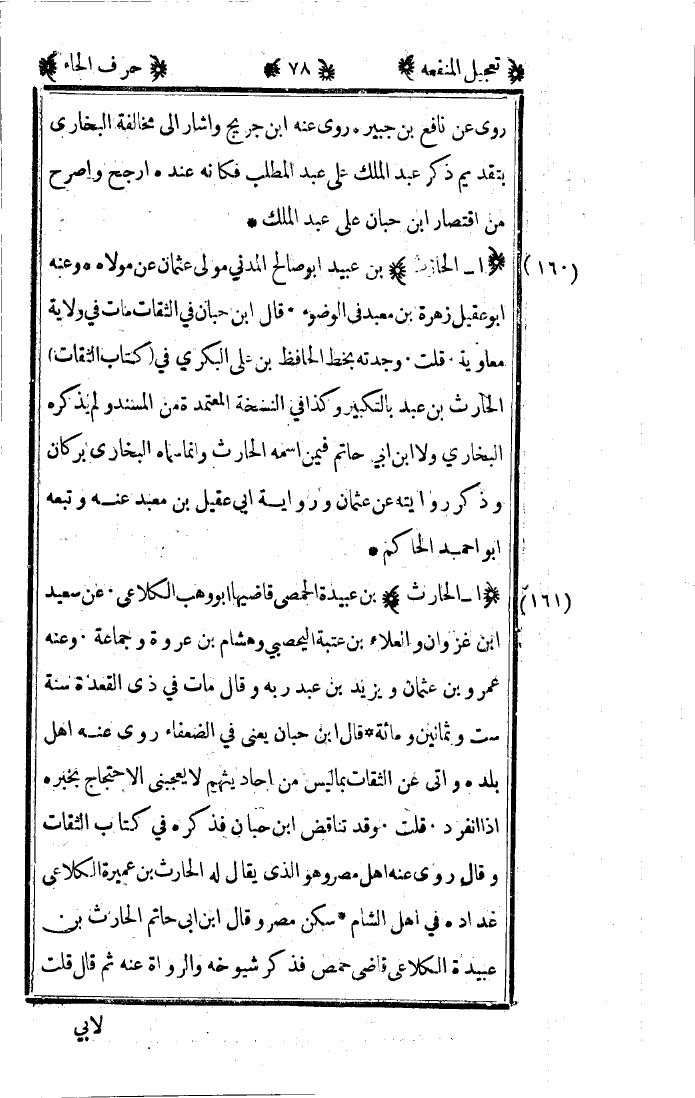 ﴿ تعجيل المنفعه ﴾ ﴿ ٧٨ ﴾ ﴿ حرف الحاء ﴾
روى عن نافع بن جبير ٠ روى عنه ابن جريج واشار الى مخالفة البخارى
بتقديم ذكر عبد الملك على عبد المطلب فكانه عنده ارجح واصرح
من اقتصار ابن حبان على عبد الملك *
(١٦٠) ﴿ ا ـ الحارث ﴾ بن عبيد ابو صالح المدني مولى عثمان عن مولاه ٠ وعنه
ابو عقيل زهرة بن معبد فى الوضوء ٠ قال ابن حبان في الثقات مات في ولاية
معاوية ٠ قلت ٠ وجدته بخط الحافظ بن على البكري في (كتاب الثقات)
الحارث بن عبد بالتكبير وكذا في النسخة المعتمدة من المسند ولم يذكره
البخاري ولا ابن ابي حاتم فيمن اسمه الحارث وانما سماه البخارى بركان
وذكر روايته عن عثمان ورواية ابي عقيل بن معبد عنه وتبعه
ابو احمد الحاكم *
(١٦١) ﴿ ا ـ الحارث ﴾ بن عبيدة الحمصي قاضيها ابو وهب الكلاعى ٠ عن سعيد
ابن غزوان والعلاء بن عتبة اليحصبي وهشام بن عروة وجماعة ٠ وعنه
عمرو بن عثمان ويزيد بن عبد ربه وقال مات في ذى القعدة سنة
ست وثمانين ومائة * قال ابن حبان يعنى في الضعفاء روى عنه اهل
بلده واتى عن الثقات بماليس من احاديثهم لا يعجبنى الاحتجاج بخبره
اذا انفرد ٠ قلت ٠ وقد تناقض ابن حبان فذكره في كتاب الثقات
وقال روى عنه اهل مصر وهو الذى يقال له الحارث بن عميرة الكلاعى
عداده في اهل الشام * سكن مصر وقال ابن ابى حاتم الحارث بن
عبيدة الكلاعى قاضى حمص فذكر شيوخه والرواة عنه ثم قال قلت
لابي